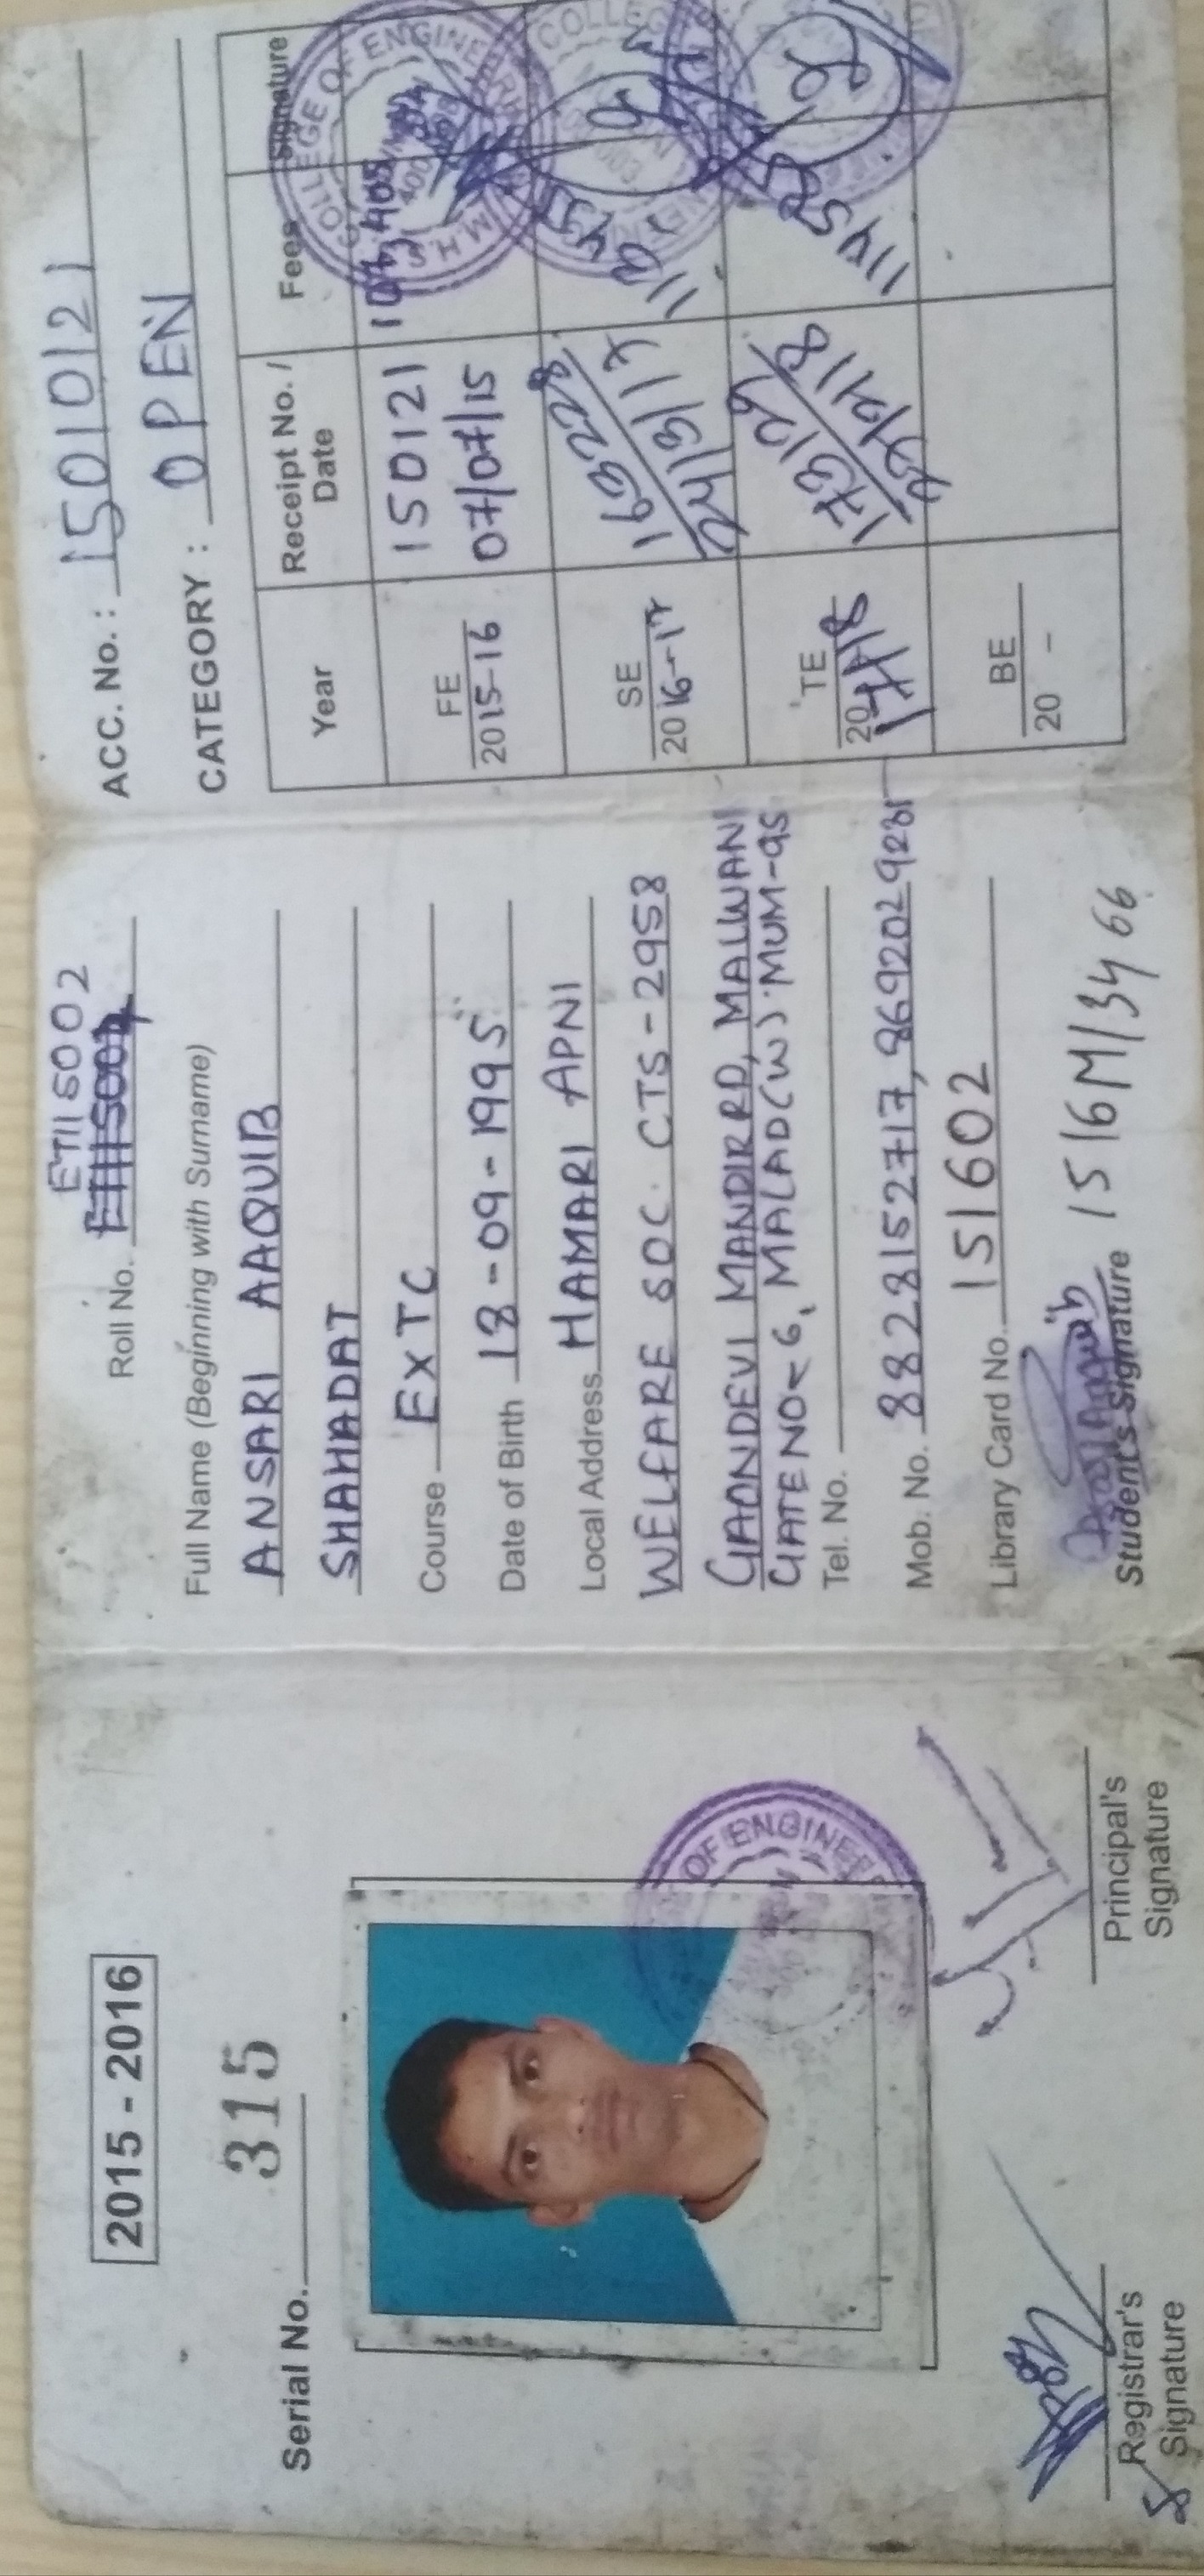 2015 - 2016
Serial No. 315
OF ENGINEE
Registrar's
Signature
Principal's
Signature
ET11502
Roll No.
Full Name (Beginning with Surname)
ANSARI AAQUIB
SHAHADAT
Course EXTC
Date of Birth 18-09-1995
Local Address HAMARI APNI
WELFARE SOC. CTS-2958
GAONDEVI MANDIR RD, MALWANI
GATE NO 6, MALAD(W) MUM-95
Tel. No.
Mob. No. 8828152717, 8692029231
Library Card No. 151602
Student's Signature 1516M13466
ACC. No. : 15010121
CATEGORY : OPEN
Year Receipt No. / Date Fees Signature
FE 2015-16 150121 07/07/15
SE 2016-17 169228
TE 20
BE 20 -
COLLEGE OF ENGINEERING
M.H.
COLLEGE